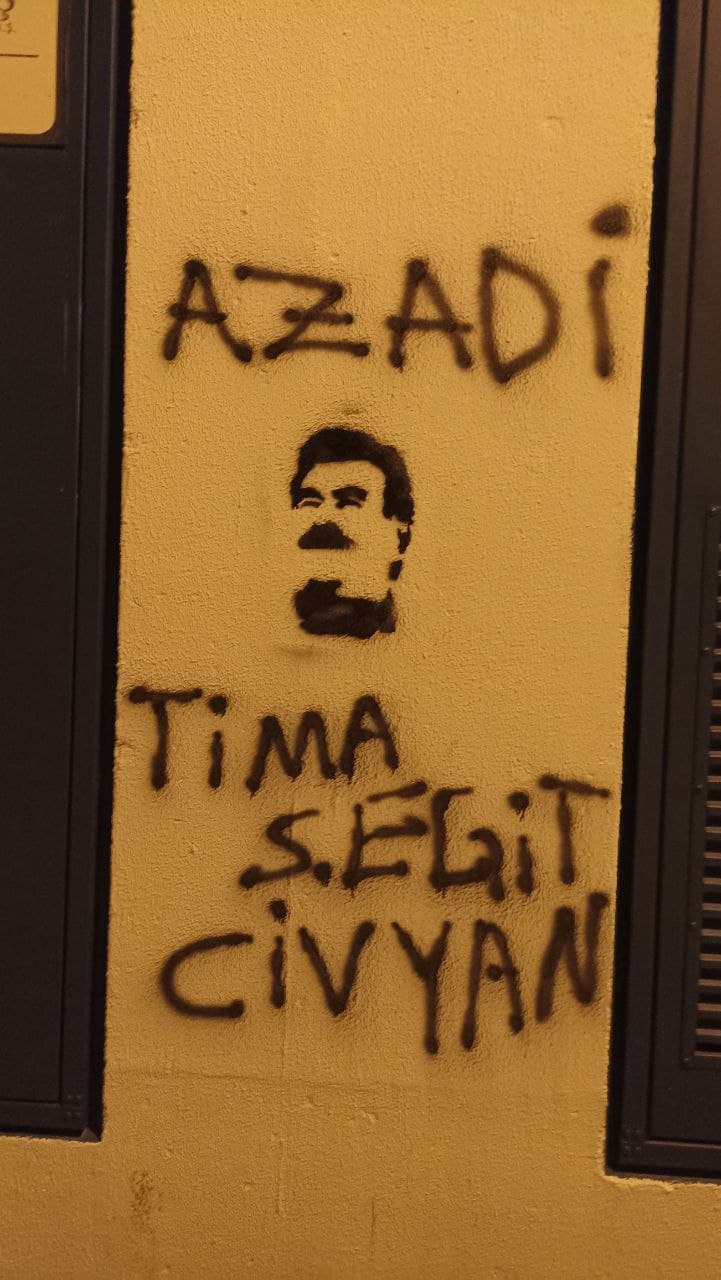 AZADİ
TİMA
Ş.EGİT
CİVYAN